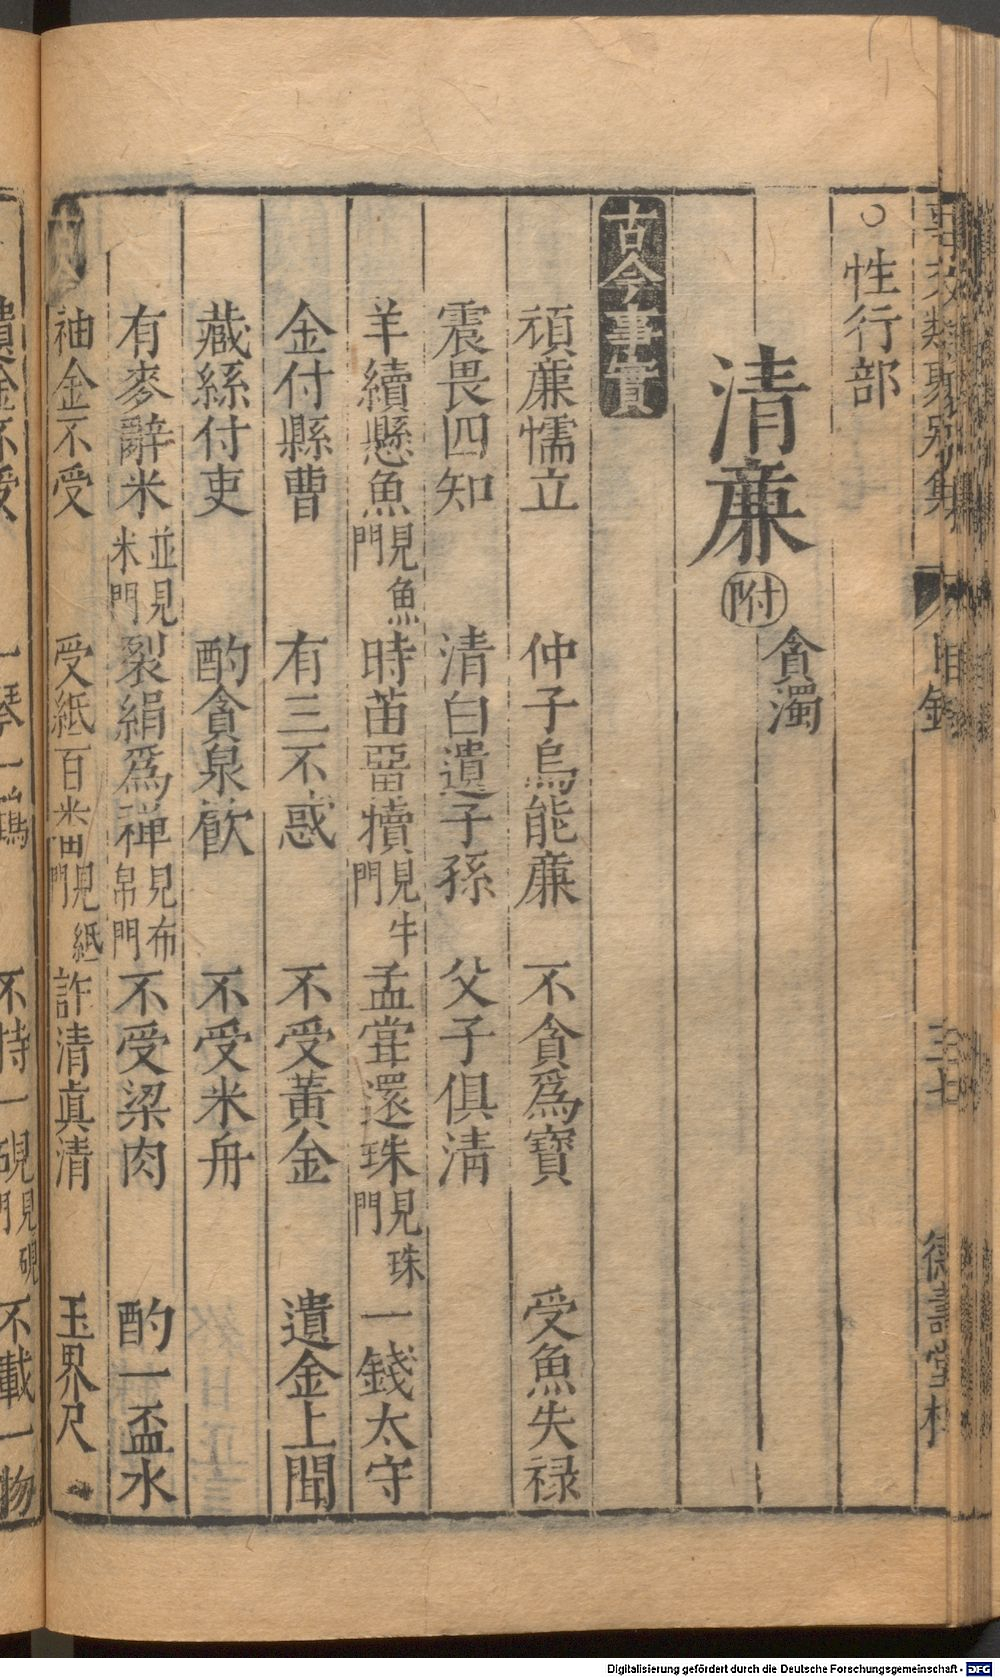 事文類聚別集 目錄 三七 德壽堂梓
○性行部
清亷 附 貪濁
古今事實
頑亷懦立 仲子烏能亷 不貪爲寶 受魚失祿
震畏四知 清白遺子孫 父子俱清
羊續懸魚見魚門 時苗畱犢見牛門 孟甞還珠見珠門 一錢太守
金付縣曹 有三不惑 不受黃金 遺金上聞
藏絲付吏 酌貪泉歠 不受米舟
有麥辭米並見米門 裂絹爲襌見布帛門 不受梁肉 酌一盃水
袖金不受 受紙一百見紙門 詐清真清 玉界尺
金不受 一琴一鶴 不持一硯見硯門 不載一物
Digitalisierung gefördert durch die Deutsche Forschungsgemeinschaft - DFG